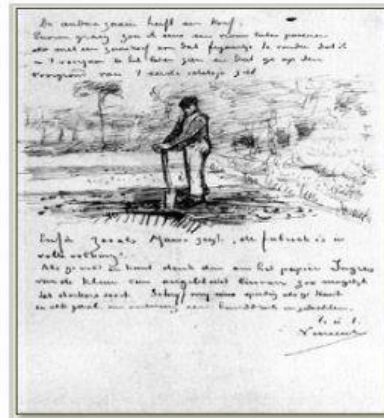 De andere zaaier heeft een korf.
Enorm graag zou ik eens een vrouw laten poseeren
met een zaaikorf om dat figuurtje te vinden dat ik
voorgrond van 't eerste schetsje ziet
Enfin zooals Mauve zegt, de fabriek is in
volle werking.
Als ge wilt en kunt denk dan om het papier Ingres
van de kleur van ongebleekt linnen zoo mogelijk
het sterkere soort. Schrijf spoedig als ge kunt
in elk geval en ontvang een handdruk in gedachten.
t. à t.
Vincent